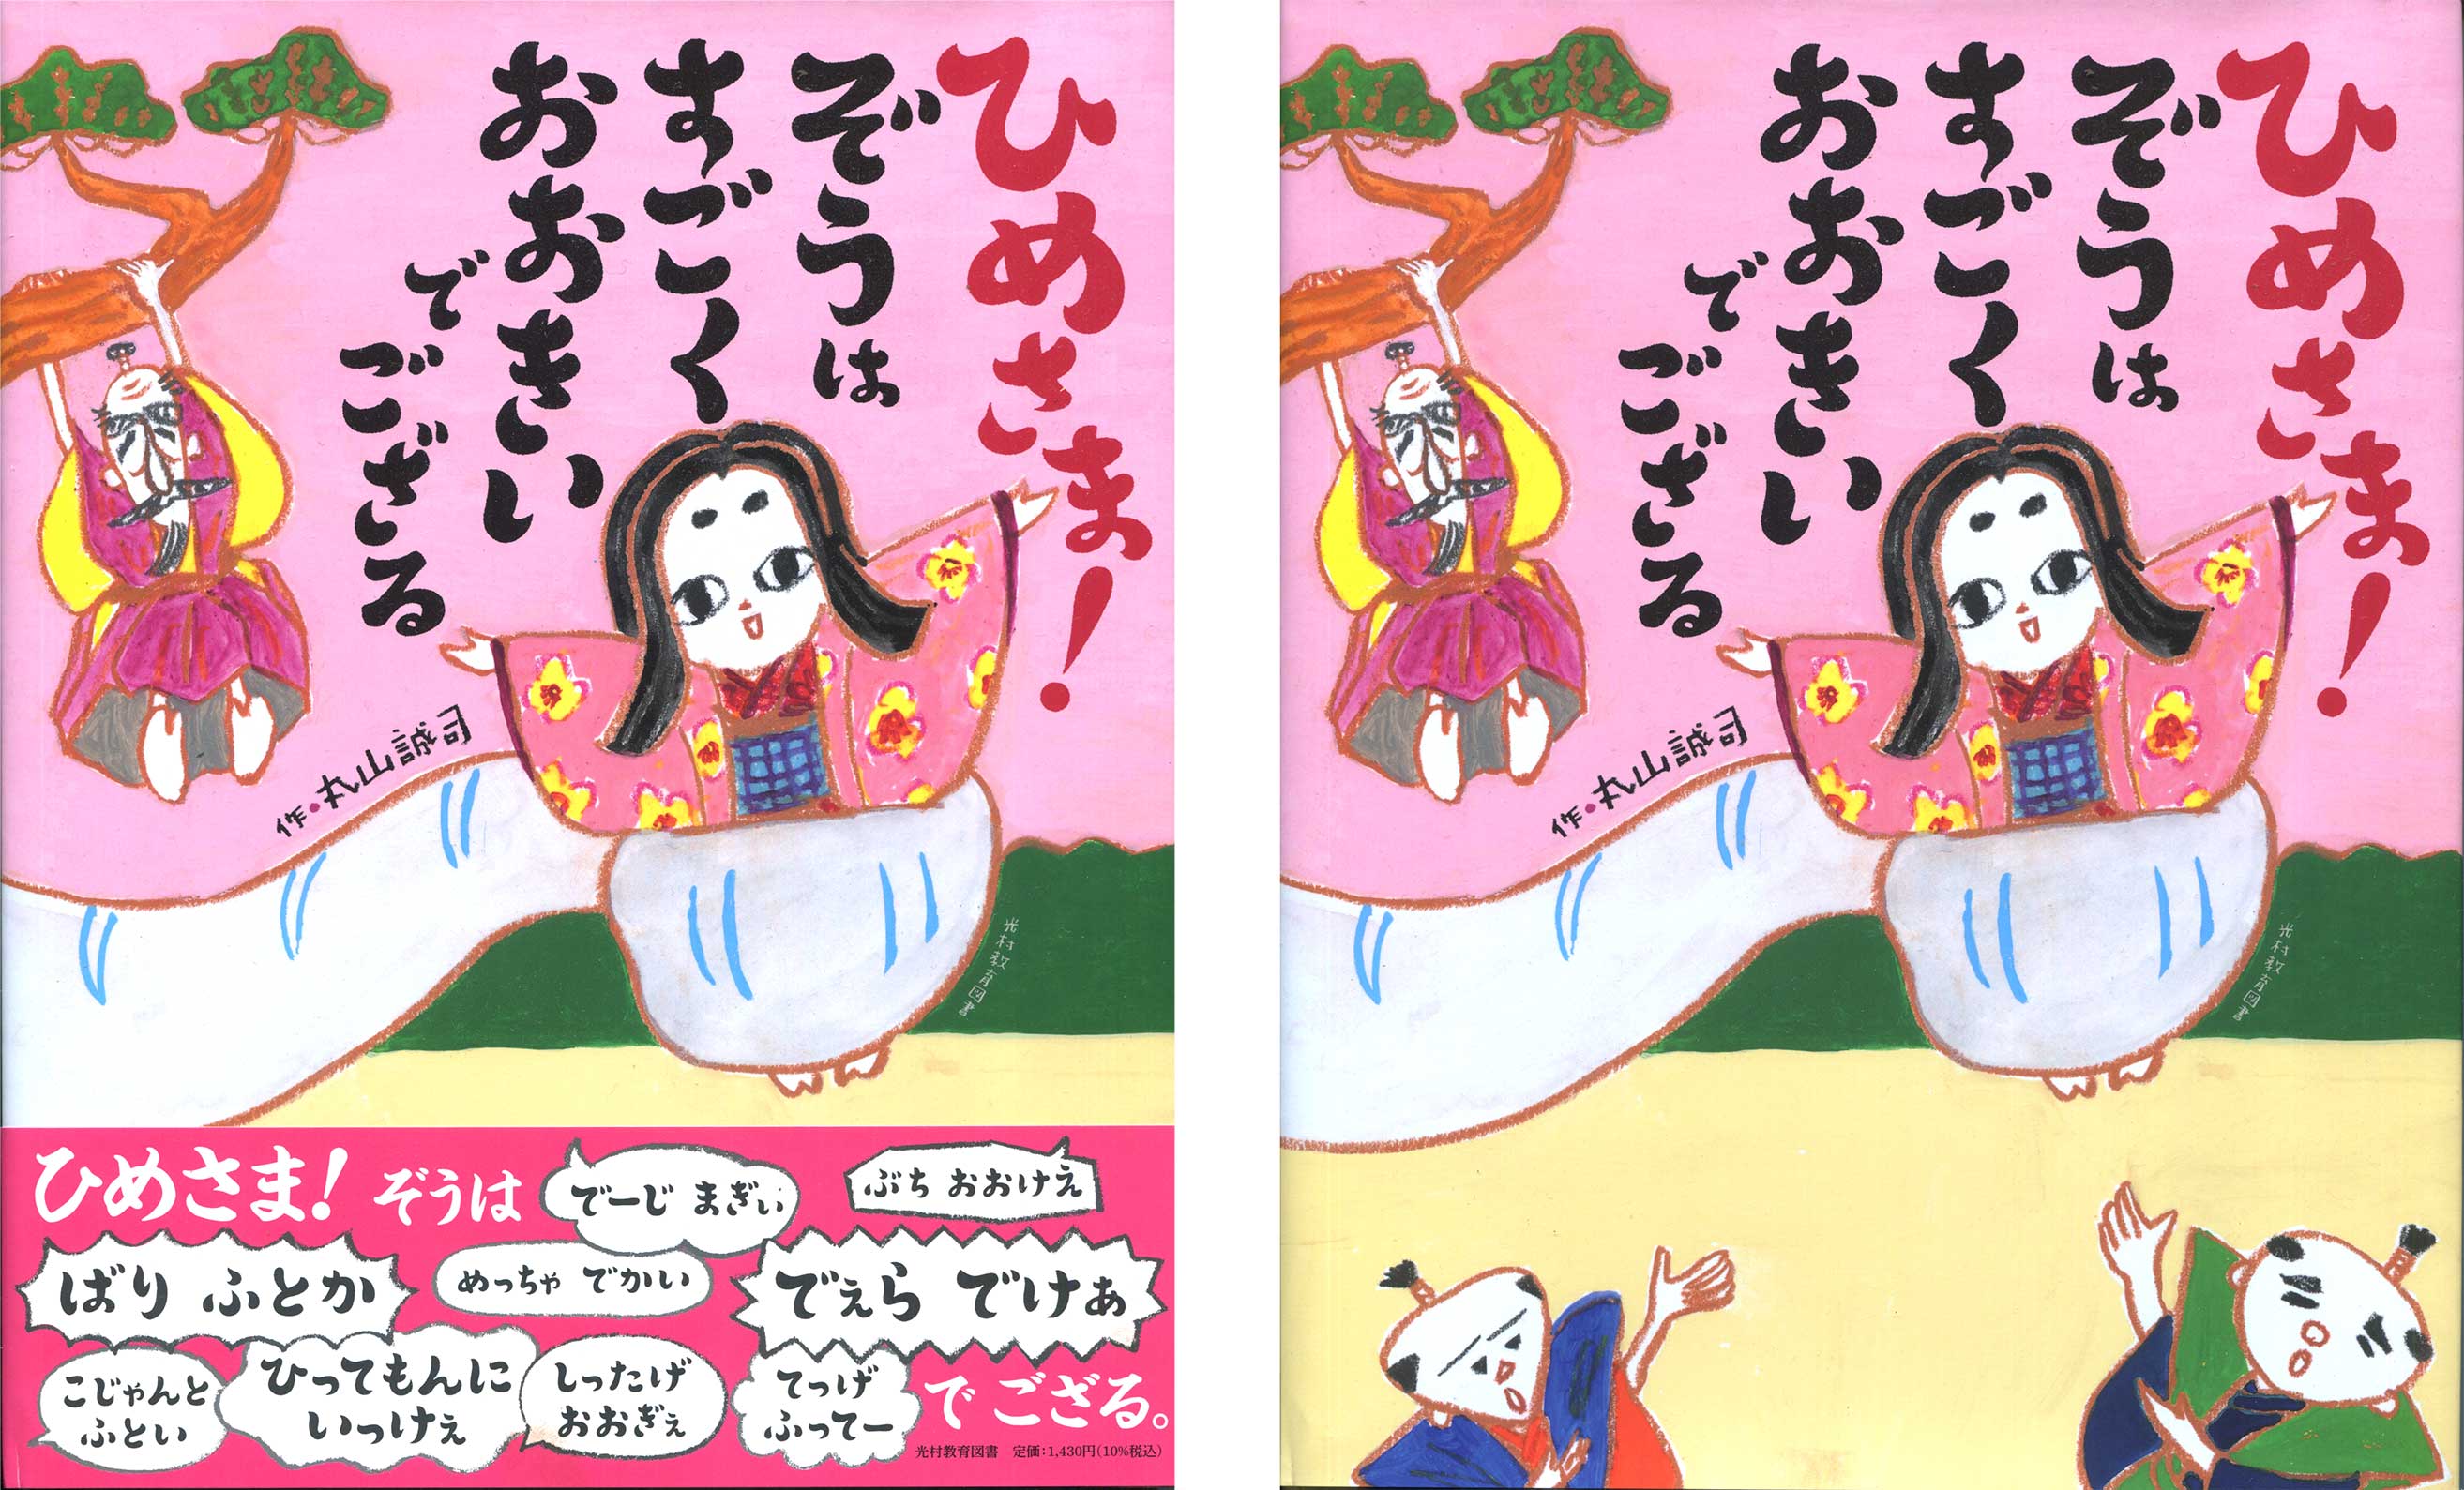 ひめさま!
ぞうは
すごく
おおきい
で
ござる
作・丸山誠司
光村教育図書
ひめさま! ぞうは
でーじ まぎぃ
ぶち おおけえ
ばり ふとか
めっちゃ でかい
でぇら でけぁ
こじゃんと
ふとい
ひってもんに
いっけぇ
しったげ
おおぎぇ
てっげ
ふってー
で ござる。
光村教育図書 定価:1,430円(10%税込)
ひめさま!
ぞうは
すごく
おおきい
で
ござる
作・丸山誠司
光村教育図書